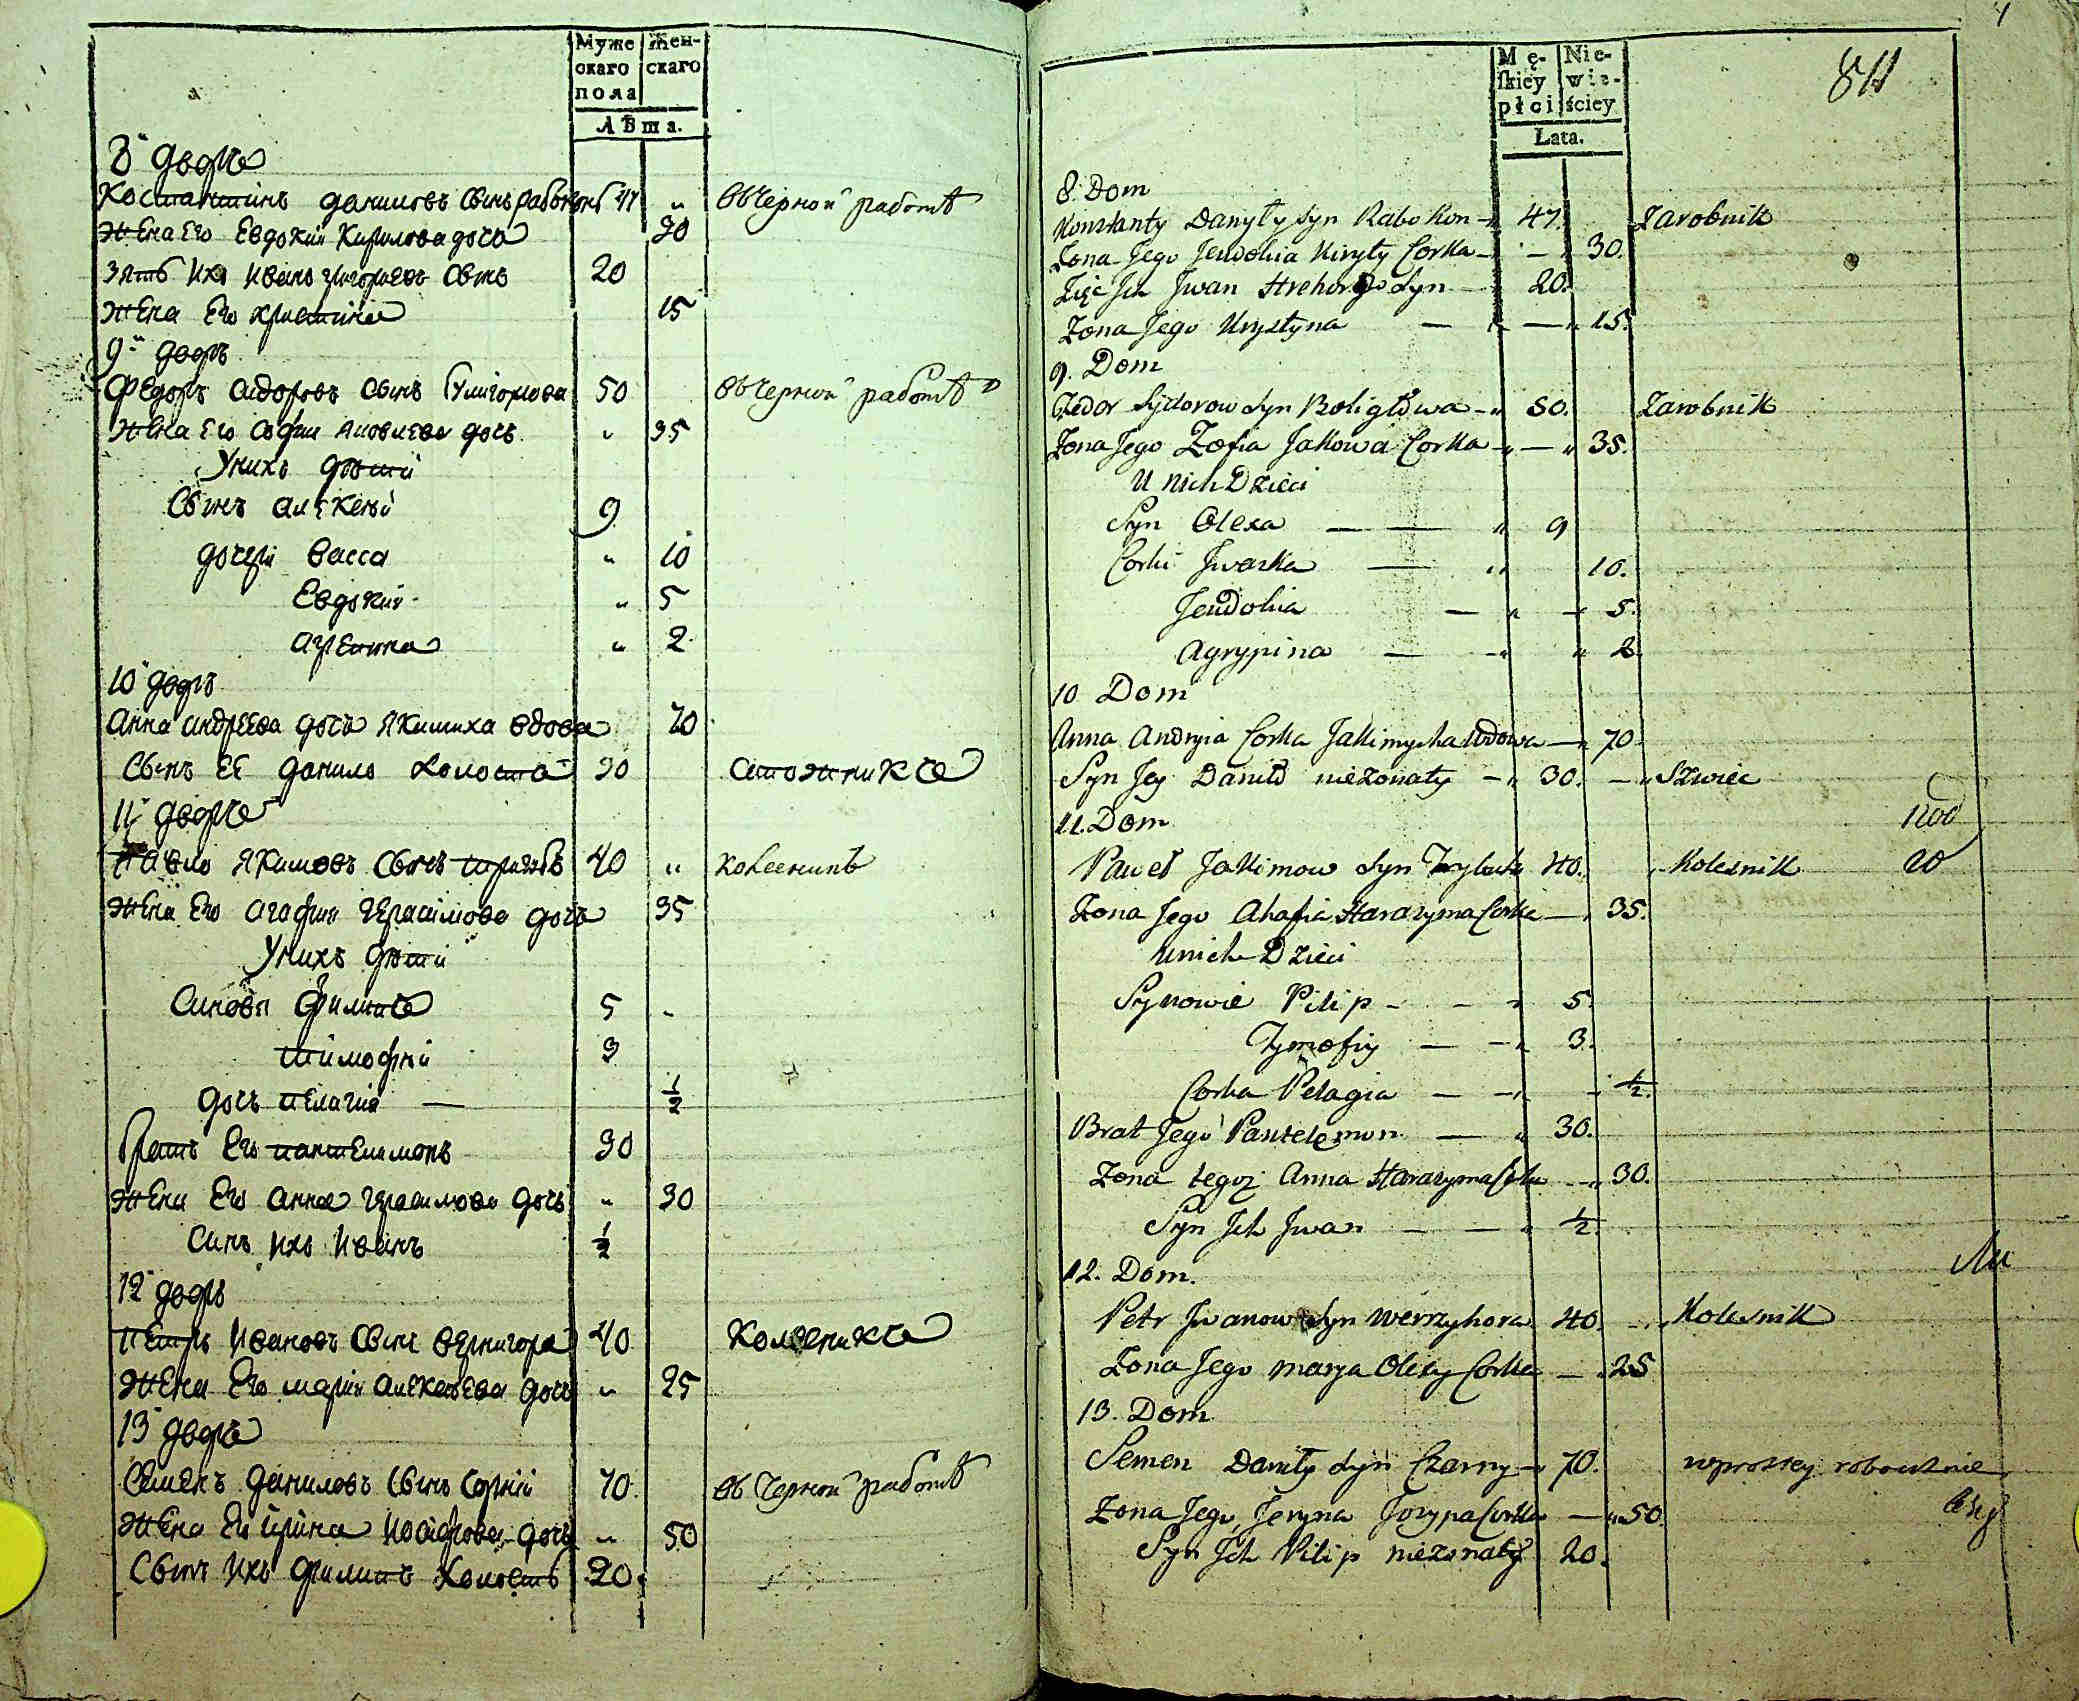 Муже
скаго
пола
Жен-
скаго
Лѣта.
8й дворъ
Костантинъ даниловъ сынъ рабоконь 47 „ въ черной работѣ
жена его Евдокия Кирилова дочь 30
зять ихъ иванъ григориевъ сынъ 20
жена его христина 15
9й дворъ
Федоръ сидоровъ сынъ 50 въ черной работѣ
жена его софия яковлева дочь „ 35
у нихъ дѣти
сынъ алекѣй 9
дочери васса „ 10
Евдокия „ 5
агрепина „ 2
10й дворъ
анна андреева дочь якимиха вдова 70
сынъ её данило холостъ 30 сапожникъ
11й дворъ
Павло якимовъ сынъ 40 „ колесникъ
жена его агафия герасимова дочь 35
у нихъ дѣти
синовя филипъ 5 „
тимофѣй 3
дочь пелагия — 1/2
братъ его пантелимонъ 30
жена его анна герасимова дочь „ 30
синъ ихъ иванъ 1/2
12й дворъ
петръ ивановъ сынъ вернигора 40 колесникъ
жена его мария алексѣева дочь „ 25
13й дворъ
семенъ даниловъ сынъ 70 въ черной работѣ
жена его ирина иосифова дочь „ 50
сынъ ихъ филипъ холостъ 20
Mę-
skiey
płci
Nie-
wie-
ściey
Lata.
84
8. Dom
Konstanty Danyły Syn Rabokon „ 47. Zarobnik
Zona Jego Jewdokia Kiryły Corka — „ 30.
Zięć Ich Jwan Hrehorego Syn — 20.
Zona Jego Krystyna — „ — „ 15.
9. Dom
Fedor Sydorow Syn — „ 50. Zarobnik
Zona Jego Zofia Jakowa Corka „ — „ 35.
U nich Dzieci
Syn Olexa — — „ 9
Corki Jwaska — „ 10.
Jewdokia — „ — 5.
Agrypina — „ „ 2
10 Dom
Anna Andryia Corka Jakimycha Wdowa — „ 70
Syn Jey Daniło niezonaty — „ 30. — „ Szwiec
11. Dom
Paweł Jakimow Syn 40. „ Kolesnik 20
Zona Jego Ahafia Harazyma Corka — „ 35.
U nich Dzieci
Synowie Pilip — — „ 5.
Tymofiy — — „ 3.
Corka Pelagia — — „ — 1/2.
Brat Jego Pantelemon — „ 30.
Zona tegoz Anna Harazyma Corka — „ 30.
Syn Ich Jwan — — „ 1/2.
12. Dom.
Petr Jwanow Syn Wernyhora 40. — „ Kolesnik
Zona Jego Marja Olexy Corka — „ 25
13. Dom
Semen Daniły Syn Czarny „ 70. w prostey robociznie
Zona Jego Jeryna Jozypa Corka — „ 50.
Syn Ich Pilip niezonaty 20.